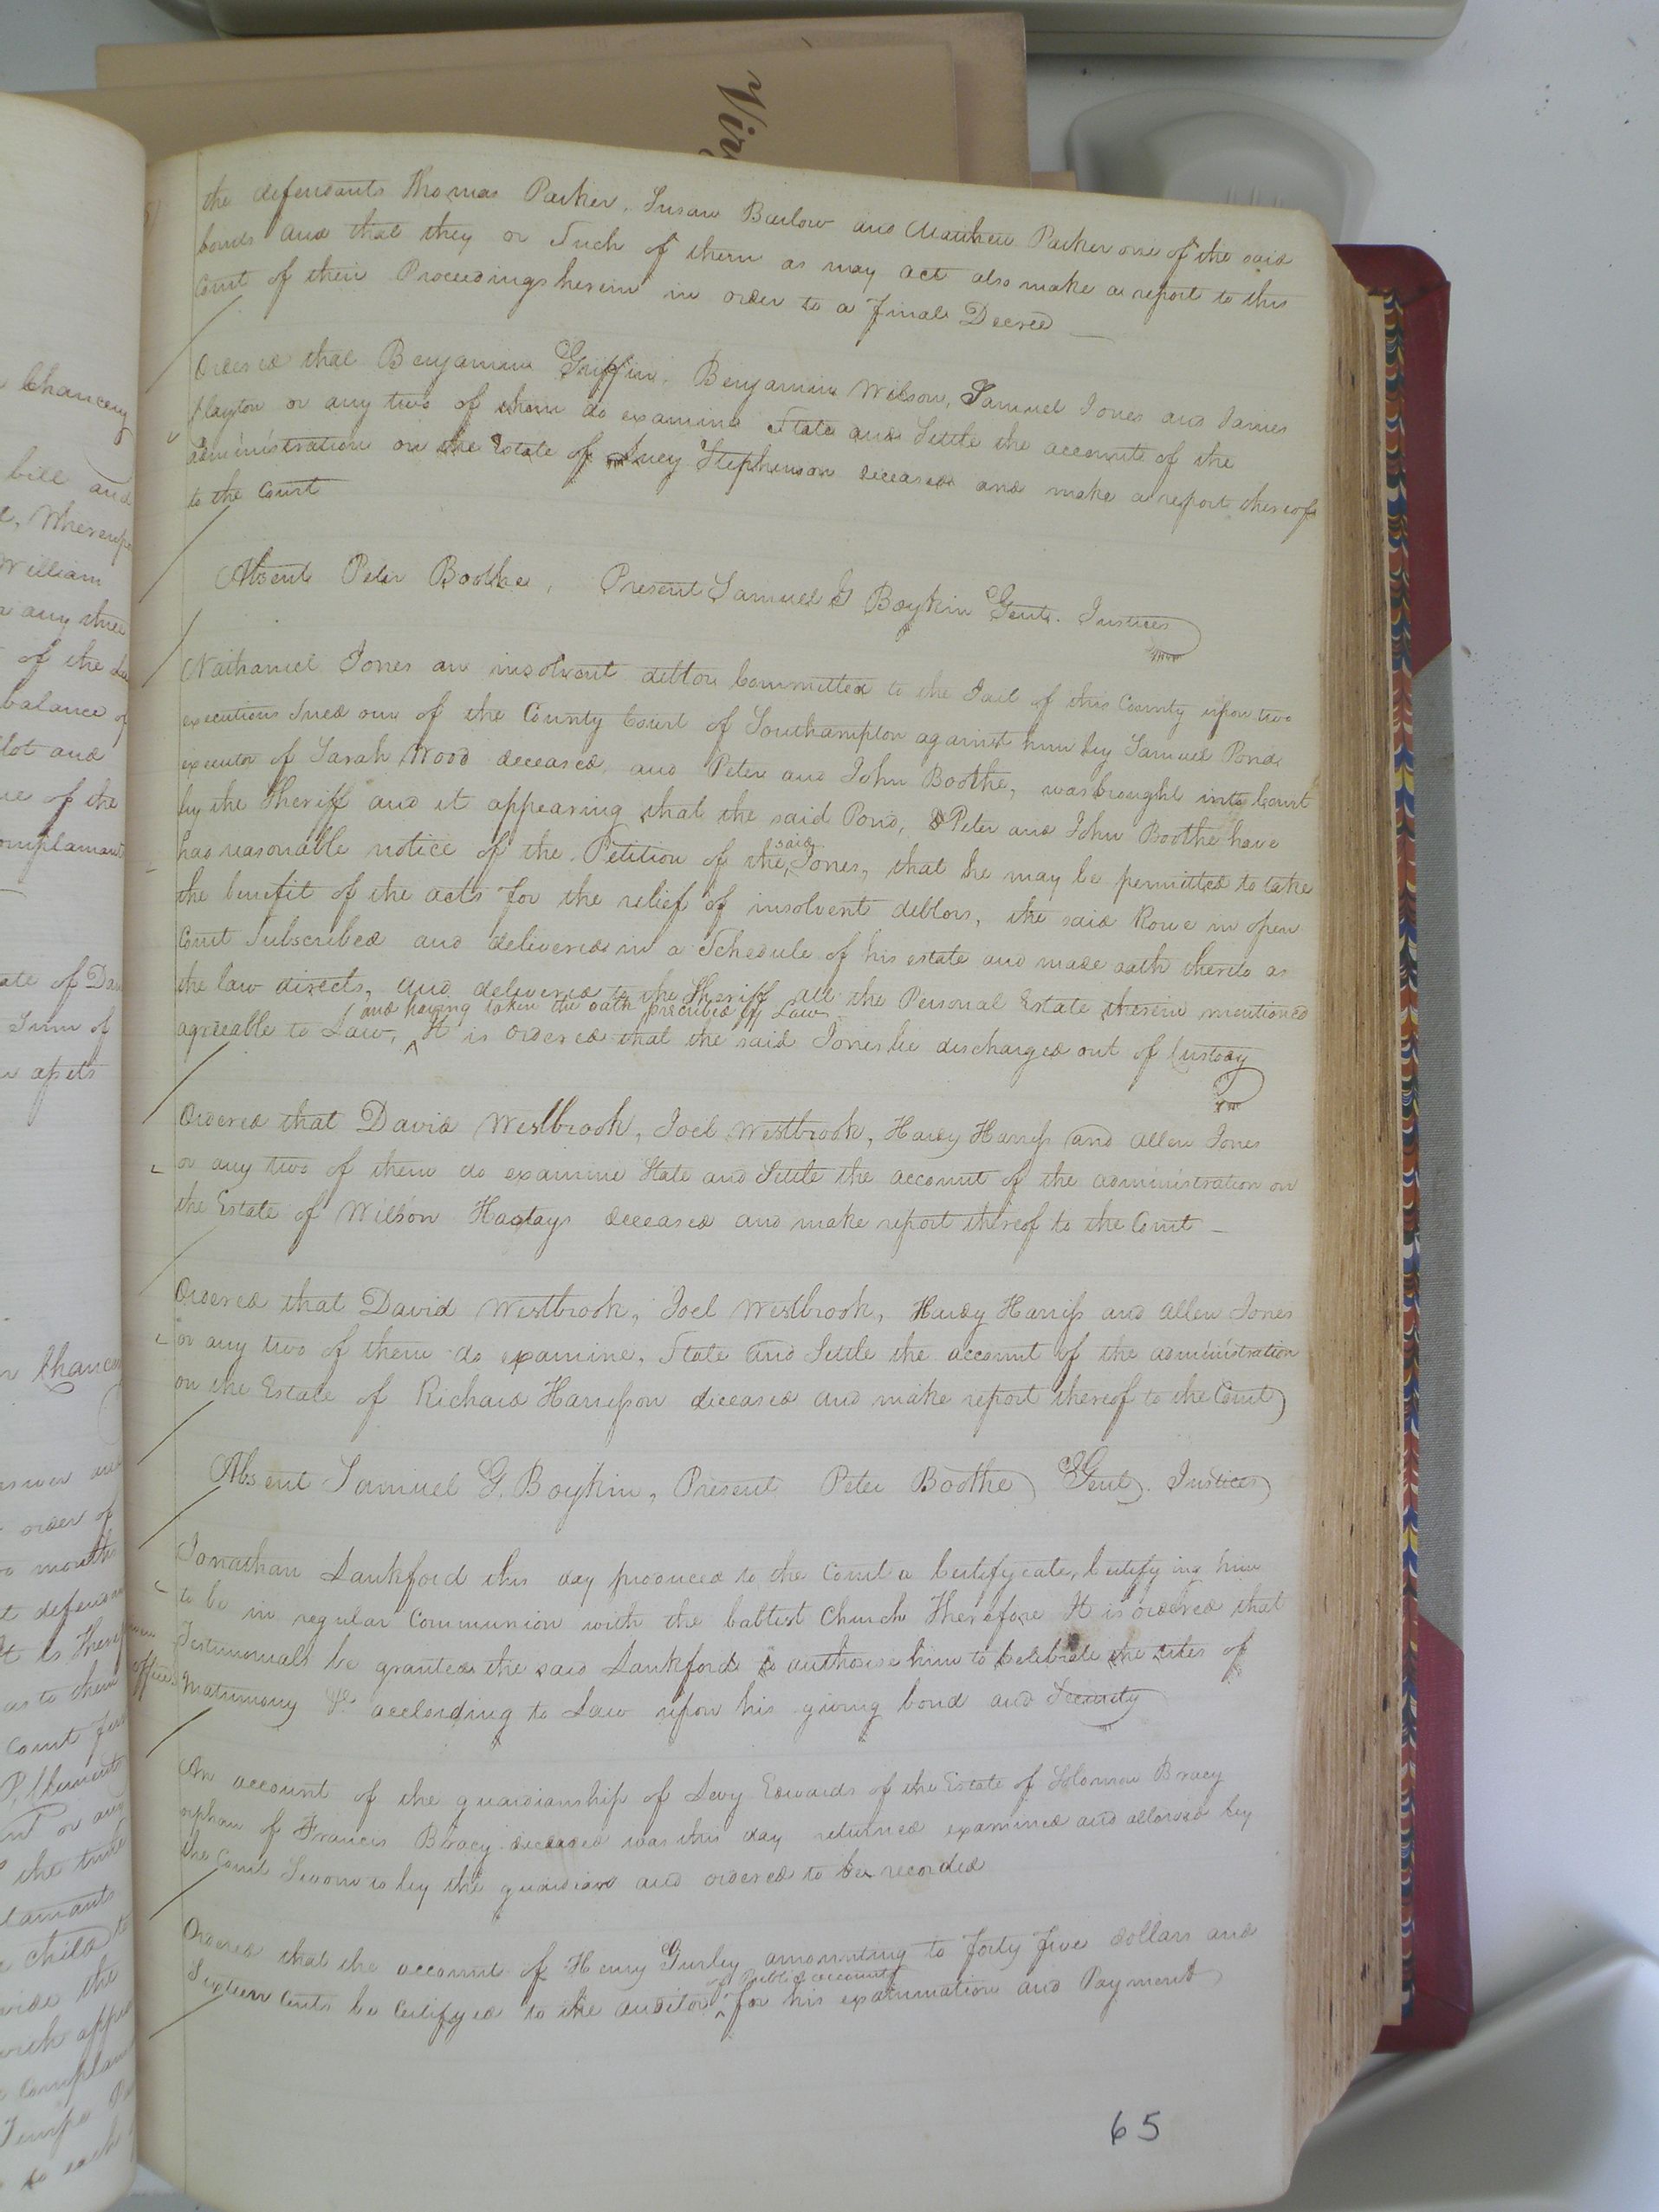 Vir
the defendants Thomas Parker, Susan Barlow and Matthew Parker one of the said
bonds and that they or Such of them as may act also make a report to this
Court of their Proceedings herein in order to a final Decree
Ordered that Benjamin Griffin, Benjamin Wilson, Samuel Jones and James
Clayton or any two of them do examine State and Settle the accounts of the
administration on the Estate of Lucy Stephenson deceased and make a report thereof
to the Court
Absent Peter Boothe, Present Samuel G Boykin Gent. Justices
Nathaniel Jones an insolvent debtor Committed to the Jail of this County upon two
executions Sued out of the County Court of Southampton against him by Samuel Pond
executor of Sarah Wood deceased, and Peter and John Boothe, was brought into Court
by the Sheriff and it appearing that the said Pond, & Peter and John Boothe have
had reasonable notice of the Petition of the said Jones, that he may be permitted to take
the benefit of the acts for the relief of insolvent debtors, the said Rowe in open
Court Subscribed and delivered in a Schedule of his estate and made oath thereto as
the law directs, and delivered to the Sheriff all the Personal Estate therein mentioned
and having taken the oath prescribed by Law
agreeable to Law, ^ It is ordered that the said Jones be discharged out of Custody
Ordered that David Westbrook, Joel Westbrook, Hardy Harriss and Allen Jones
or any two of them do examine State and Settle the account of the administration on
the Estate of Wilson deceased and make report thereof to the Court
Ordered that David Westbrook, Joel Westbrook, Hardy Harriss and Allen Jones
or any two of them do examine, State and Settle the account of the administration
on the Estate of Richard Harrisson deceased and make report thereof to the Court
Absent Samuel G. Boykin, Present Peter Boothe Gent. Justices
Jonathan Lankford this day produced to the Court a Certifycate, Certifying him
to be in regular Communion with the babtist Church Therefore It is ordered that
Testimonials be granted the said Lankford to authorise him to Celebrate the rites of
matrimony &c according to Law upon his giving bond and Security
An account of the guardianship of Levy Edwards of the Estate of Solomon Bracy
orphan of Francis Bracy deceased was this day returned examined and allowed by
the Court Sworn to by the guardian and ordered to be recorded
Ordered that the account of Henry Gurley amounting to forty five dollars and
of Public accounts
Sixteen Cents be Certifyed to the auditor ^ for his examination and Payment
65
Chancery
bill and
William
any three
of the
balance of
lot and
of the
ate of
Sum of
order of
months
as to them
Court
the time
child to